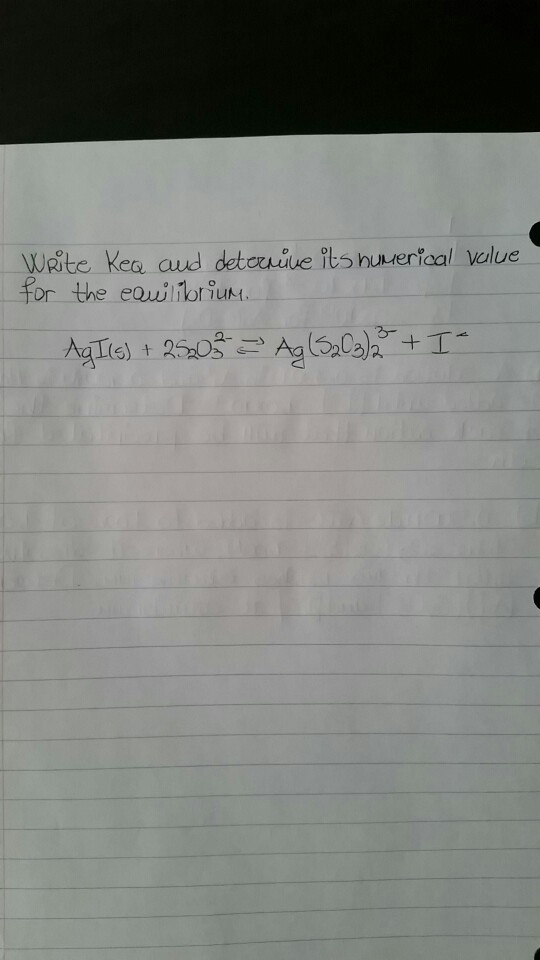 Write Keq and determine its numerical value
for the equilibrium.
AgI(s) + 2S₂O₃²⁻ ⇌ Ag(S₂O₃)₂³⁻ + I⁻